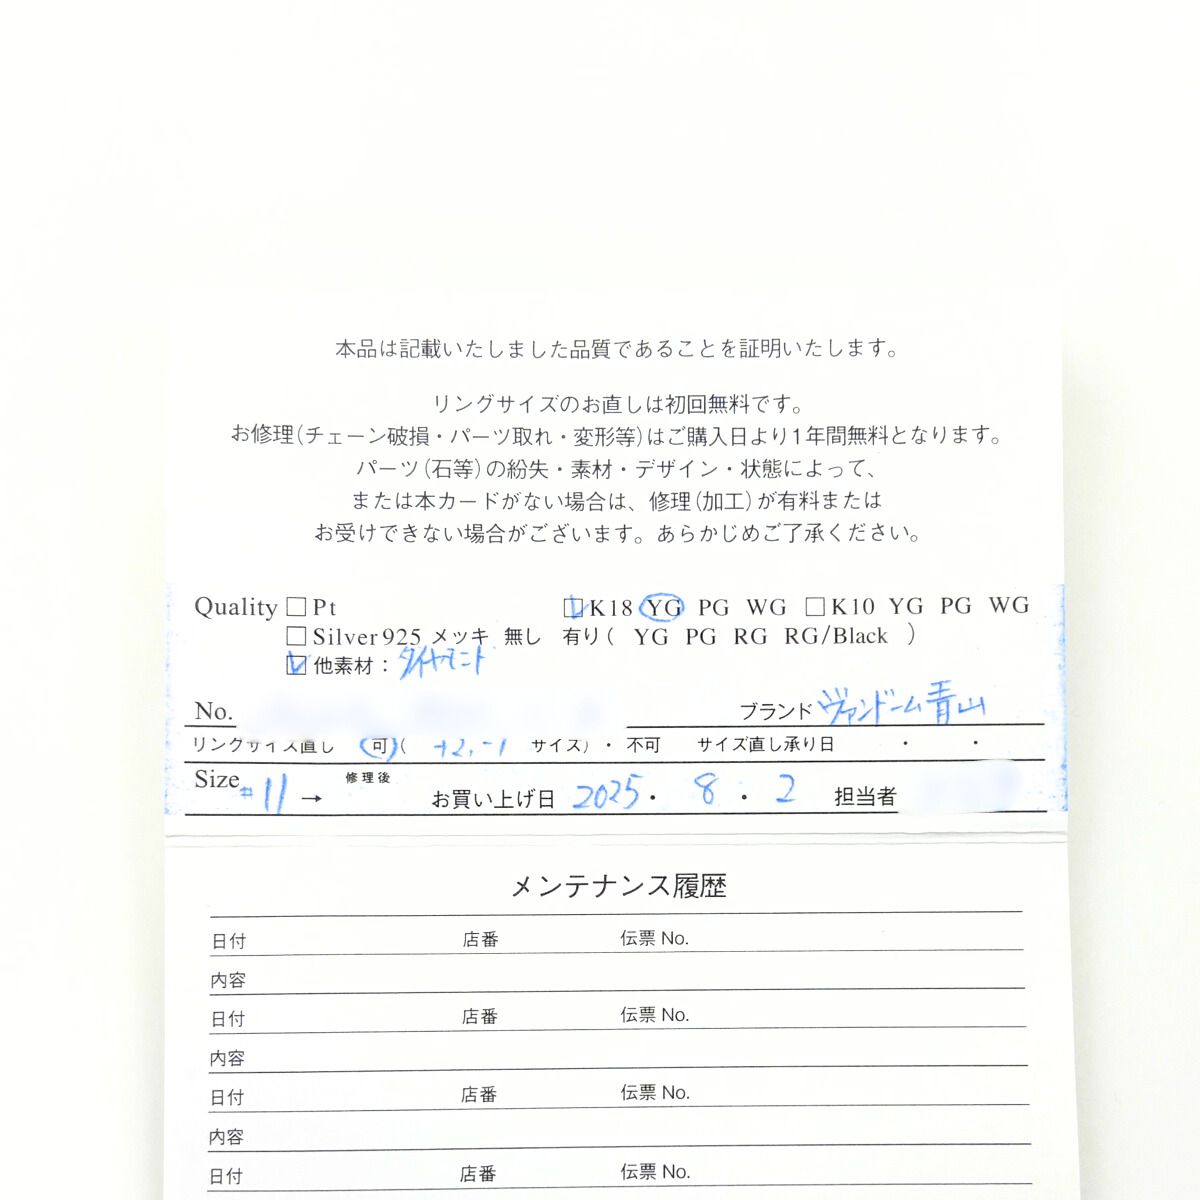 本品は記載いたしました品質であることを証明いたします。
リングサイズのお直しは初回無料です。
お修理(チェーン破損・パーツ取れ・変形等)はご購入日より1年間無料となります。
パーツ(石等)の紛失・素材・デザイン・状態によって、
または本カードがない場合は、修理(加工)が有料または
お受けできない場合がございます。あらかじめご了承ください。
Quality □Pt ☑K18 YG PG WG □K10 YG PG WG
□Silver925 メッキ 無し 有り( YG PG RG RG/Black )
☑他素材：ダイヤモンド
No. ブランド ヴァンドーム青山
リングサイズ直し 可( +2,-1 サイズ)・不可 サイズ直し承り日 ・ ・
Size #11 → 修理後 お買い上げ日 2025・8・2 担当者
メンテナンス履歴
日付 店番 伝票 No.
内容
日付 店番 伝票 No.
内容
日付 店番 伝票 No.
内容
日付 店番 伝票 No.